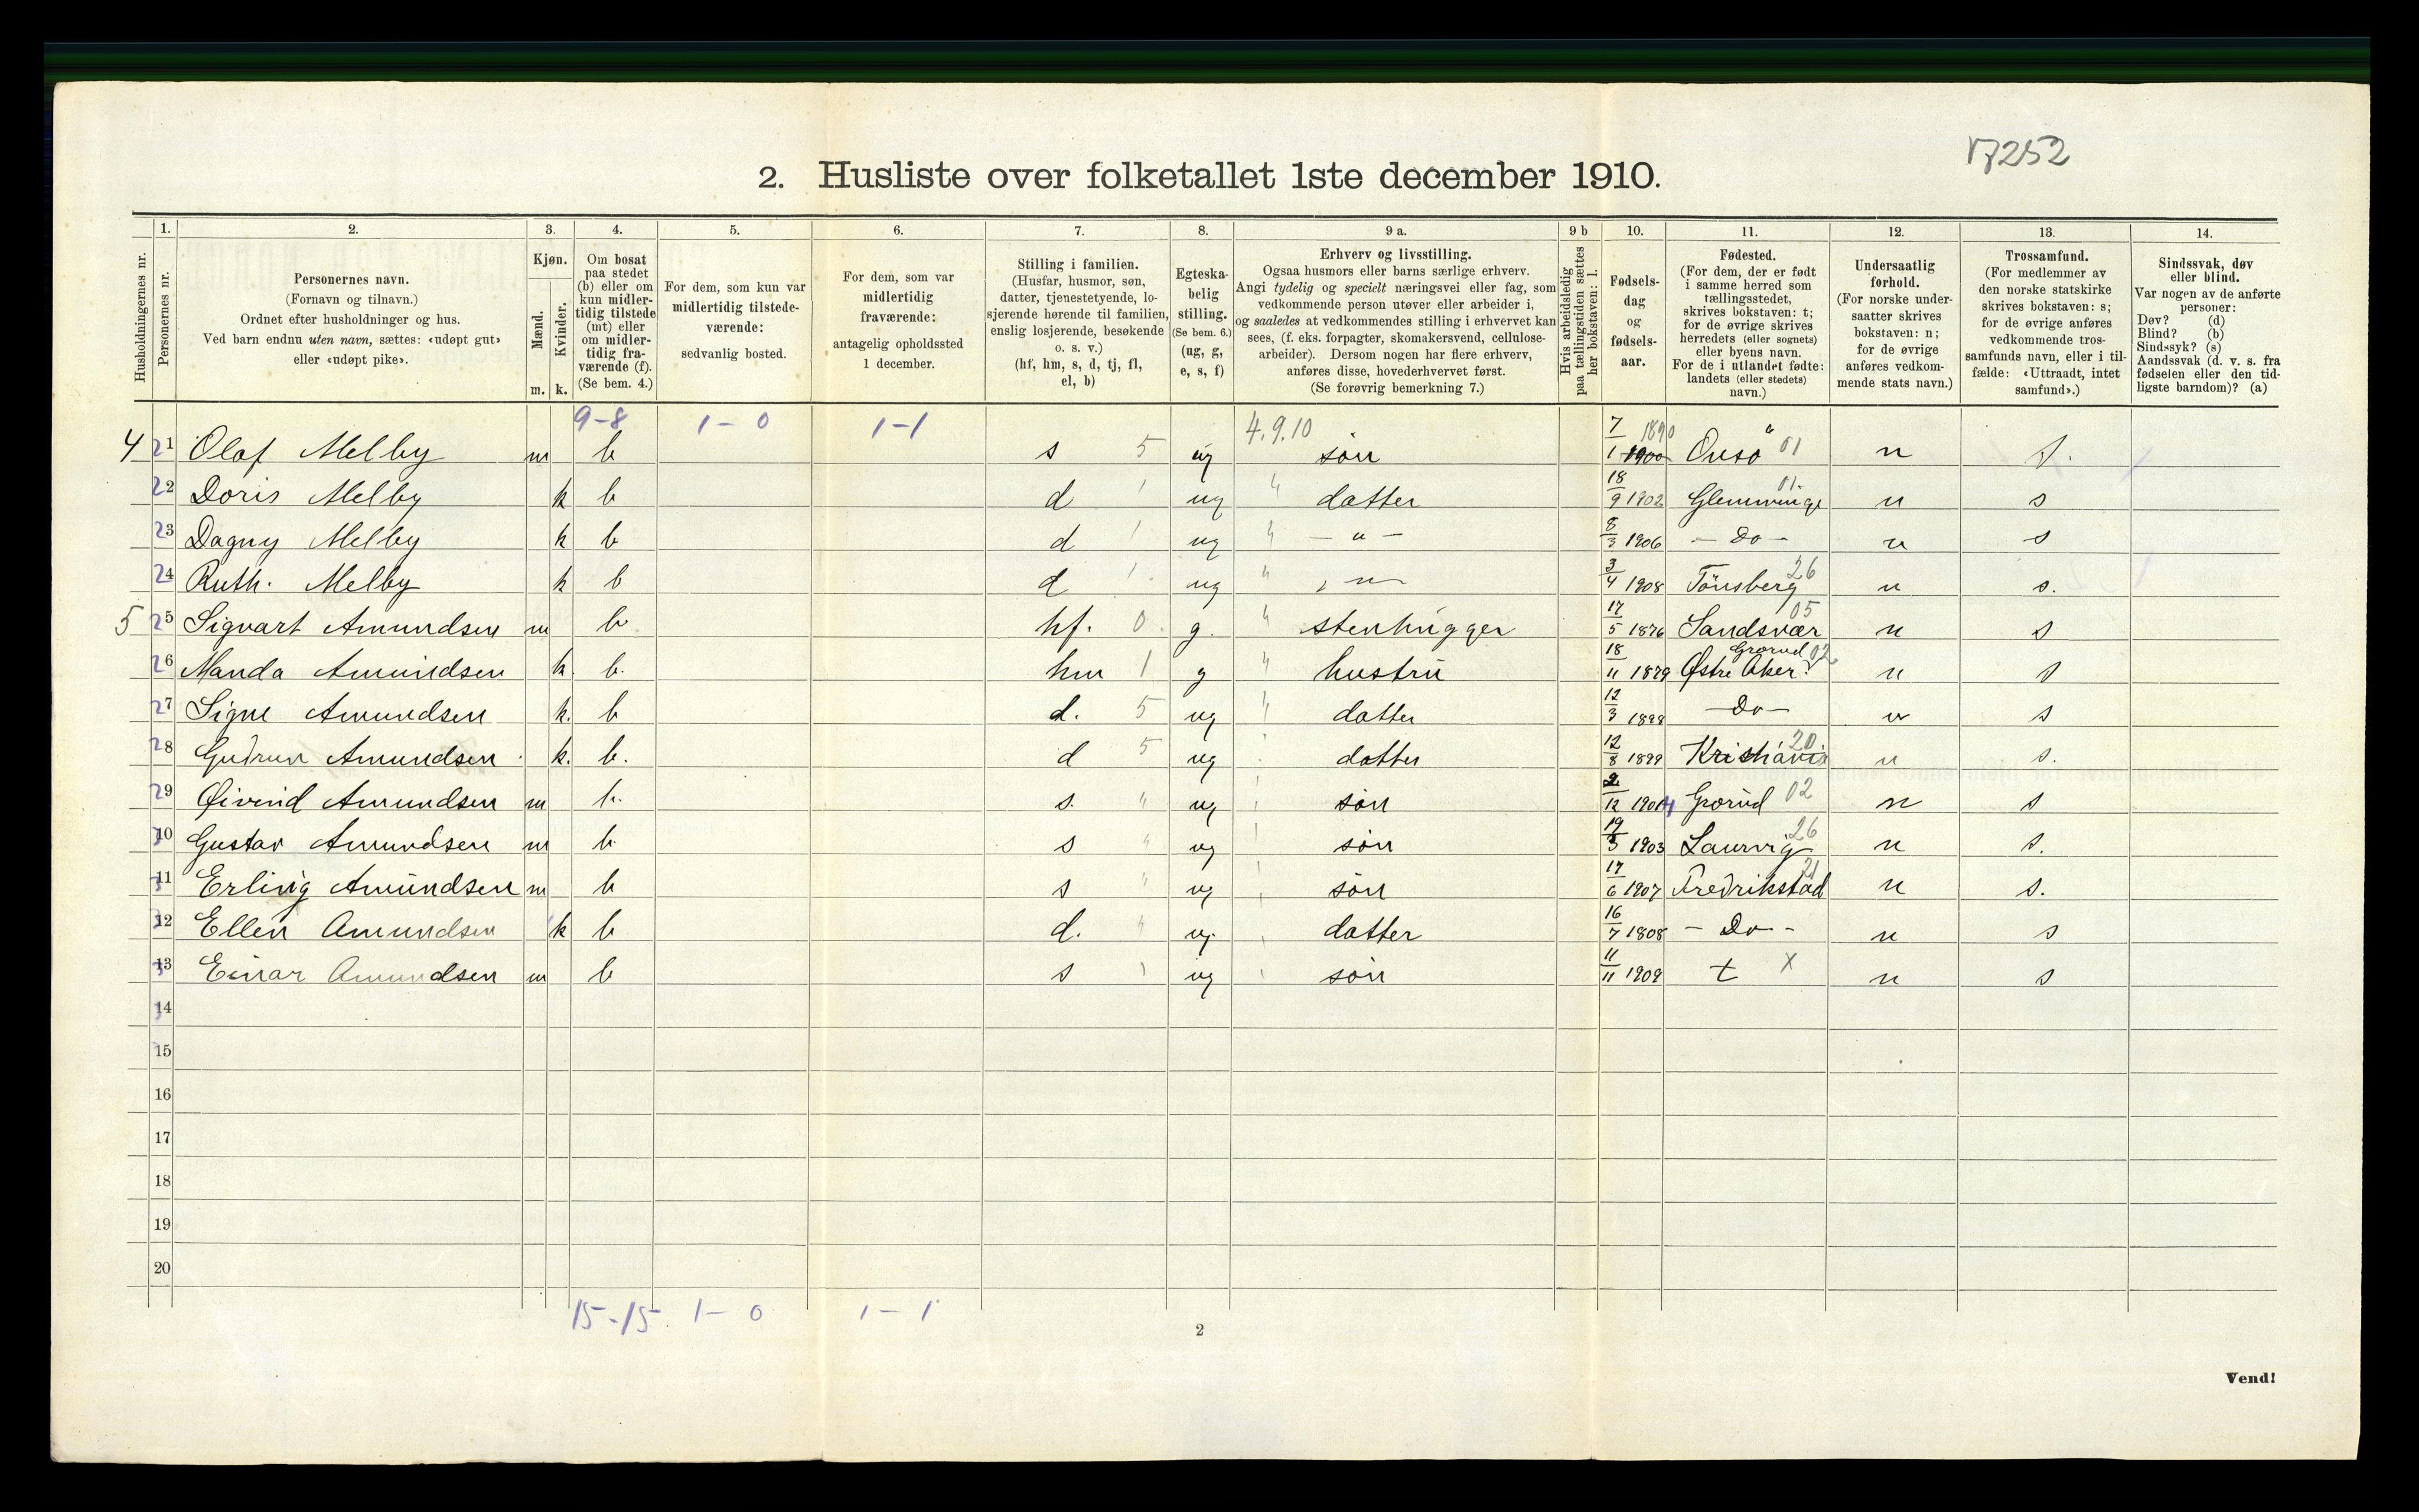 17252
2. Husliste over folketallet 1ste december 1910.
Husholdningernes nr.
1. Personernes nr.
2. Personernes navn.
(Fornavn og tilnavn.)
Ordnet efter husholdninger og hus.
Ved barn endnu uten navn, sættes: «udøpt gut»
eller «udøpt pike».
3. Kjøn.
Mænd. m.
Kvinder. k.
4. Om bosat
paa stedet
(b) eller om
kun midler-
tidig tilstede
(mt) eller
om midler-
tidig fra-
værende (f).
(Se bem. 4.)
5. For dem, som kun var
midlertidig tilstede-
værende:
sedvanlig bosted.
6. For dem, som var
midlertidig
fraværende:
antagelig opholdssted
1 december.
7. Stilling i familien.
(Husfar, husmor, søn,
datter, tjenestetyende, lo-
sjerende hørende til familien,
enslig losjerende, besøkende
o. s. v.)
(hf, hm, s, d, tj, fl,
el, b)
8. Egteska-
belig
stilling.
(Se bem. 6.)
(ug, g,
e, s, f)
9 a. Erhverv og livsstilling.
Ogsaa husmors eller barns særlige erhverv.
Angi tydelig og specielt næringsvei eller fag, som
vedkommende person utøver eller arbeider i,
og saaledes at vedkommendes stilling i erhvervet kan
sees, (f. eks. forpagter, skomakersvend, cellulose-
arbeider). Dersom nogen har flere erhverv,
anføres disse, hovederhvervet først.
(Se forøvrig bemerkning 7.)
9 b Hvis arbeidsledig
paa tællingstiden sættes
her bokstaven: l.
10. Fødsels-
dag
og
fødsels-
aar.
11. Fødested.
(For dem, der er født
i samme herred som
tællingsstedet,
skrives bokstaven: t;
for de øvrige skrives
herredets (eller sognets)
eller byens navn.
For de i utlandet fødte:
landets (eller stedets)
navn.)
12. Undersaatlig
forhold.
(For norske under-
saatter skrives
bokstaven: n;
for de øvrige
anføres vedkom-
mende stats navn.)
13. Trossamfund.
(For medlemmer av
den norske statskirke
skrives bokstaven: s;
for de øvrige anføres
vedkommende tros-
samfunds navn, eller i til-
fælde: «Uttraadt, intet
samfund».)
14. Sindssvak, døv
eller blind.
Var nogen av de anførte
personer:
Døv? (d)
Blind? (b)
Sindssyk? (s)
Aandssvak (d. v. s. fra
fødselen eller den tid-
ligste barndom)? (a)
9-8 1-0 1-1 4.9.10
4 21 Olaf Melby m b s 5 ug søn 7/1 1900 1890 Onsø 01 n s.
22 Doris Melby k b d 1 ug " datter 18/9 1902 Glemminge 01. n s
23 Dagny Melby k b d 1 ug " - " - 8/3 1906 - Do - n s
24 Ruth. Melby k b d 1. ug " - " - 3/4 1908 Tönsberg 26 n s.
5 25 Sigvart Amundsen m b hf. 0. g. " stenhugger 17/5 1876 Sandsvær 05 n s
26 Manda Amundsen k. b. hm 1 g " hustru 18/11 1879 Østre Aker Grorud 02 n s
27 Signe Amundsen k. b d. 5 ug " datter 12/3 1898 - Do - n s
28 Gudrun Amundsen k. b. d 5 ug datter 12/8 1899 Kristiania 20 n s.
29 Øivind Amundsen m b. s. " ug søn 2/12 1901 Grorud 02 n s
10 Gustav Amundsen m b s " ug søn 19/3 1903 Laurvig 26 n s.
11 Erling Amundsen m b s " ug søn 17/6 1907 Fredrikstad 21 n s.
12 Ellen Amundsen k b d. " ug. datter 16/7 1808 - Do - n s
13 Einar Amundsen m b s ug søn 11/11 1909 t X n s
14
15
16
17
18
19
20
15-15. 1-0 1-1
2
Vend!